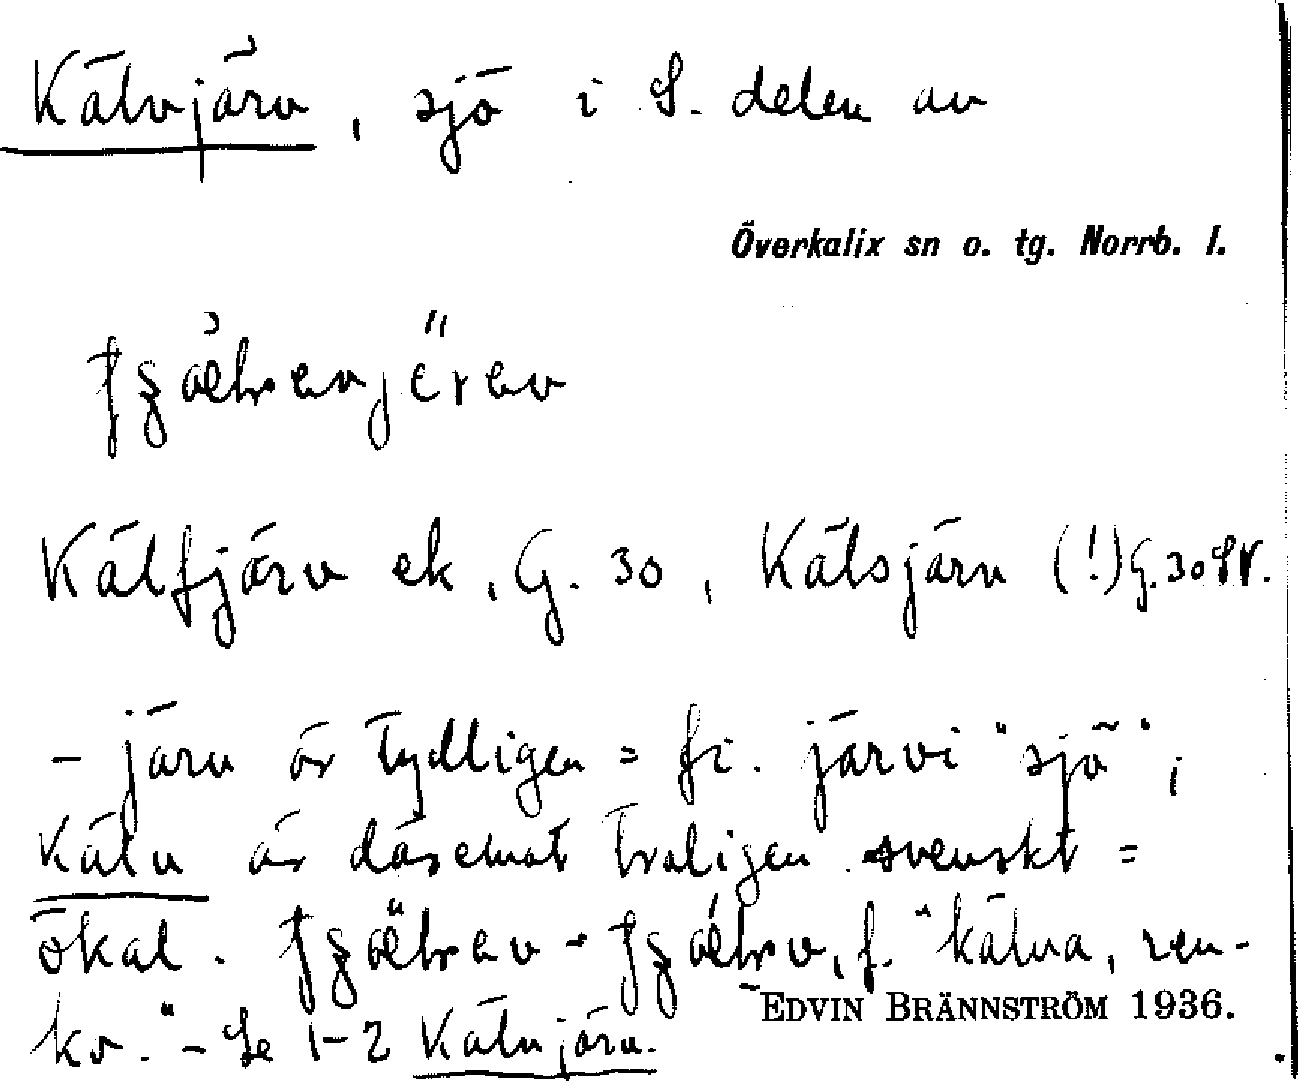 Kälvjärv, sjö i S. delen av
Överkalix sn o. tg. Norrb. l.
Kälfjärv ek. G. 30, Kälsjärv (!) G. 30 SV.
- järv är tydligen = fi. järvi "sjö";
Kälv är däremot troligen svenskt =
ökal. f. "kälva, ren-
ko." - Se 1-2 Kälvjärv.
EDVIN BRÄNNSTRÖM 1936.